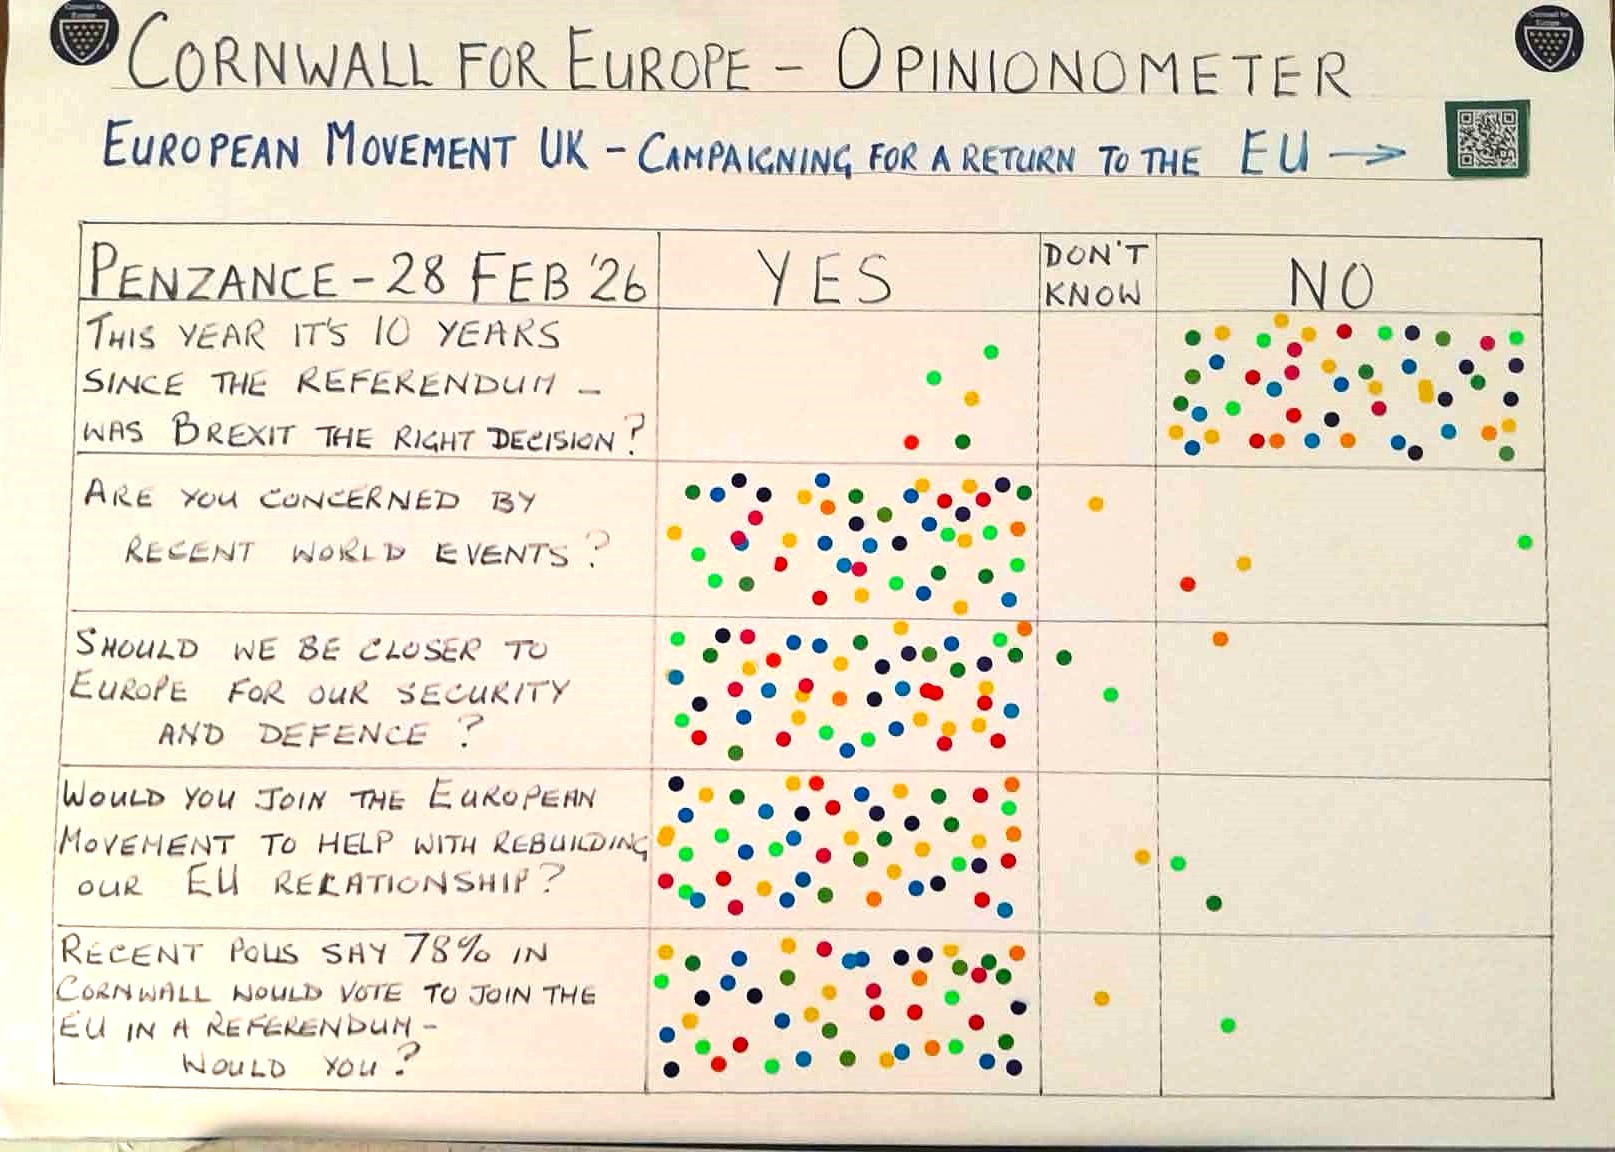 Cornwall for
Europe
Cornwall for
Europe
CORNWALL FOR EUROPE - OPINIONOMETER
EUROPEAN MOVEMENT UK - CAMPAIGNING FOR A RETURN TO THE EU →
PENZANCE - 28 FEB '26
YES
DON'T
KNOW
NO
THIS YEAR IT'S 10 YEARS
SINCE THE REFERENDUM -
WAS BREXIT THE RIGHT DECISION?
ARE YOU CONCERNED BY
RECENT WORLD EVENTS?
SHOULD WE BE CLOSER TO
EUROPE FOR OUR SECURITY
AND DEFENCE?
WOULD YOU JOIN THE EUROPEAN
MOVEMENT TO HELP WITH REBUILDING
OUR EU RELATIONSHIP?
RECENT POLLS SAY 78% IN
CORNWALL WOULD VOTE TO JOIN THE
EU IN A REFERENDUM -
WOULD YOU?